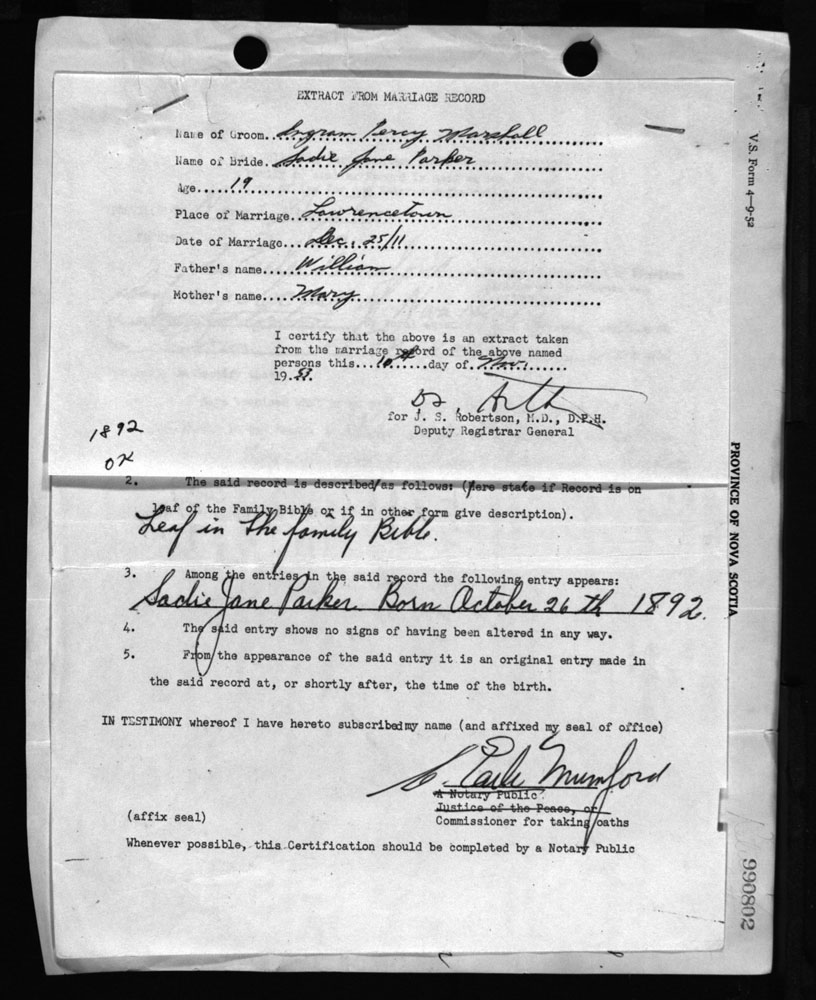 EXTRACT FROM MARRIAGE RECORD
Name of Groom..Ingram Percy Marshall
Name of Bride..Sadie Jane Parker
Age.....19
Place of Marriage..Lawrencetown
Date of Marriage...Dec. 25/11
Father's name....William
Mother's name....Mary
I certify that the above is an extract taken
from the marriage record of the above named
persons this...10th......day of..Nov.......
19.
for J. S. Robertson, M.D., D.P.H.
Deputy Registrar General
1892
OK
2. The said record is described as follows: (Here state if Record is on
leaf of the Family Bible or if in other form give description).
Leaf in the family Bible.
3. Among the entries in the said record the following entry appears:
Sadie Jane Parker. Born October 26th 1892.
4. The said entry shows no signs of having been altered in any way.
5. From the appearance of the said entry it is an original entry made in
the said record at, or shortly after, the time of the birth.
IN TESTIMONY whereof I have hereto subscribed my name (and affixed my seal of office)
Earle Mumford
A Notary Public
Justice of the Peace, or
(affix seal) Commissioner for taking oaths
Whenever possible, this Certification should be completed by a Notary Public
V.S. Form 4—9-52
PROVINCE OF NOVA SCOTIA
990802